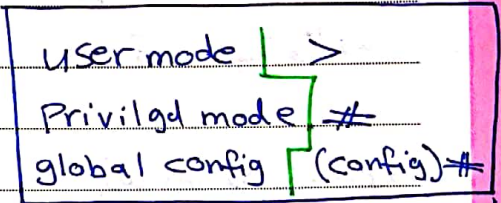 user mode >
Privilgd mode #
global config (config)#